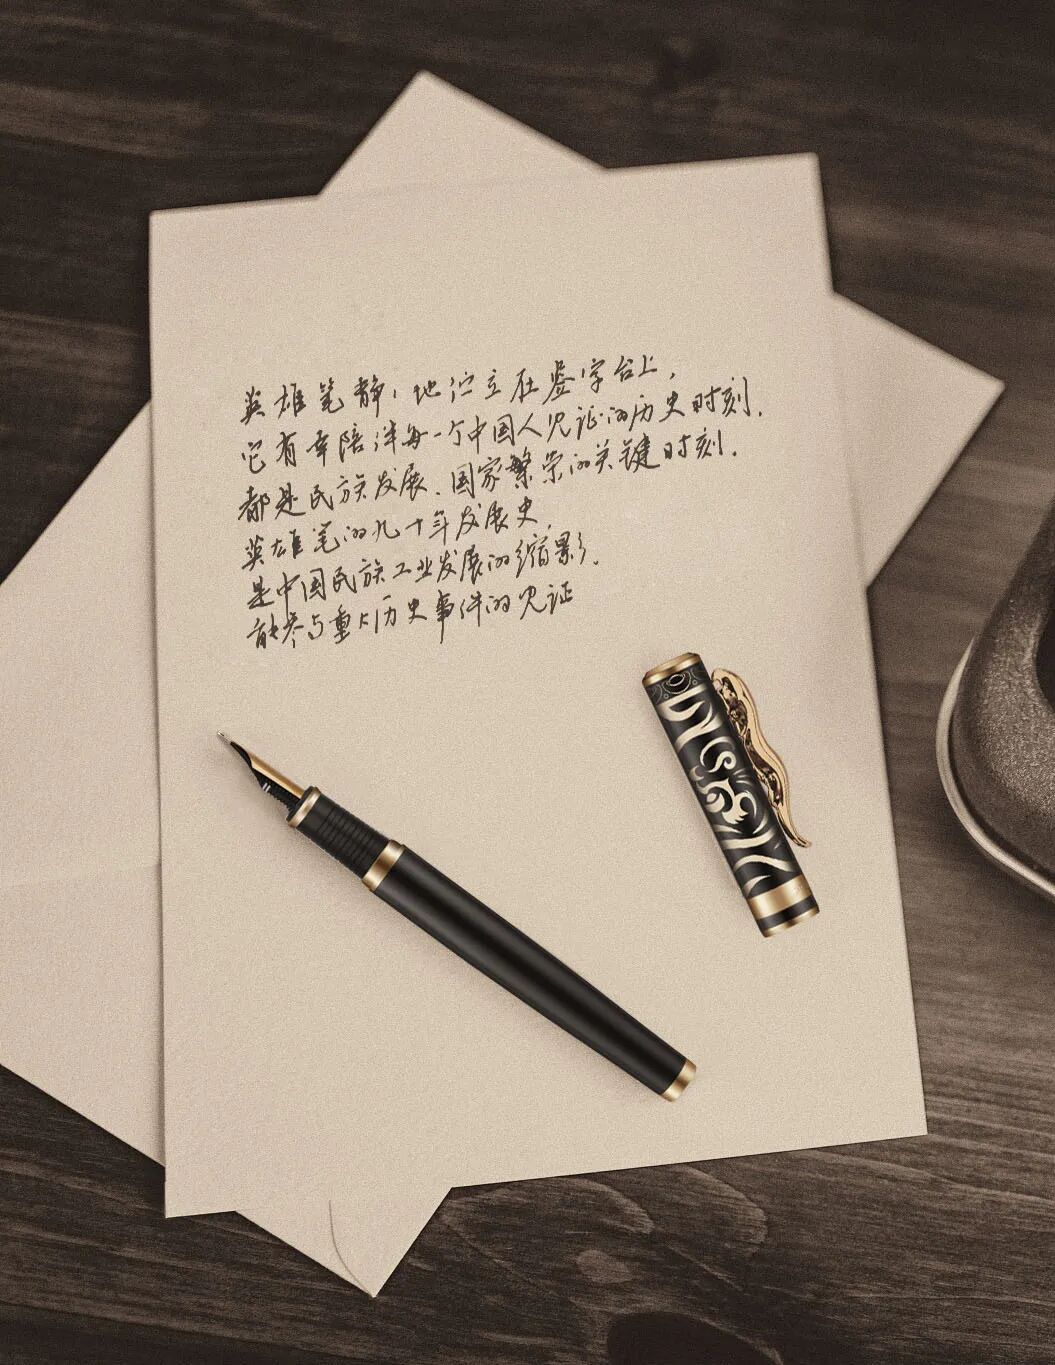 英雄笔静静地伫立在签字台上,
它有幸陪伴每一个中国人见证的历史时刻.
都是民族发展、国家繁荣的关键时刻.
英雄笔的九十年发展史,
是中国民族工业发展的缩影.
能参与重大历史事件的见证